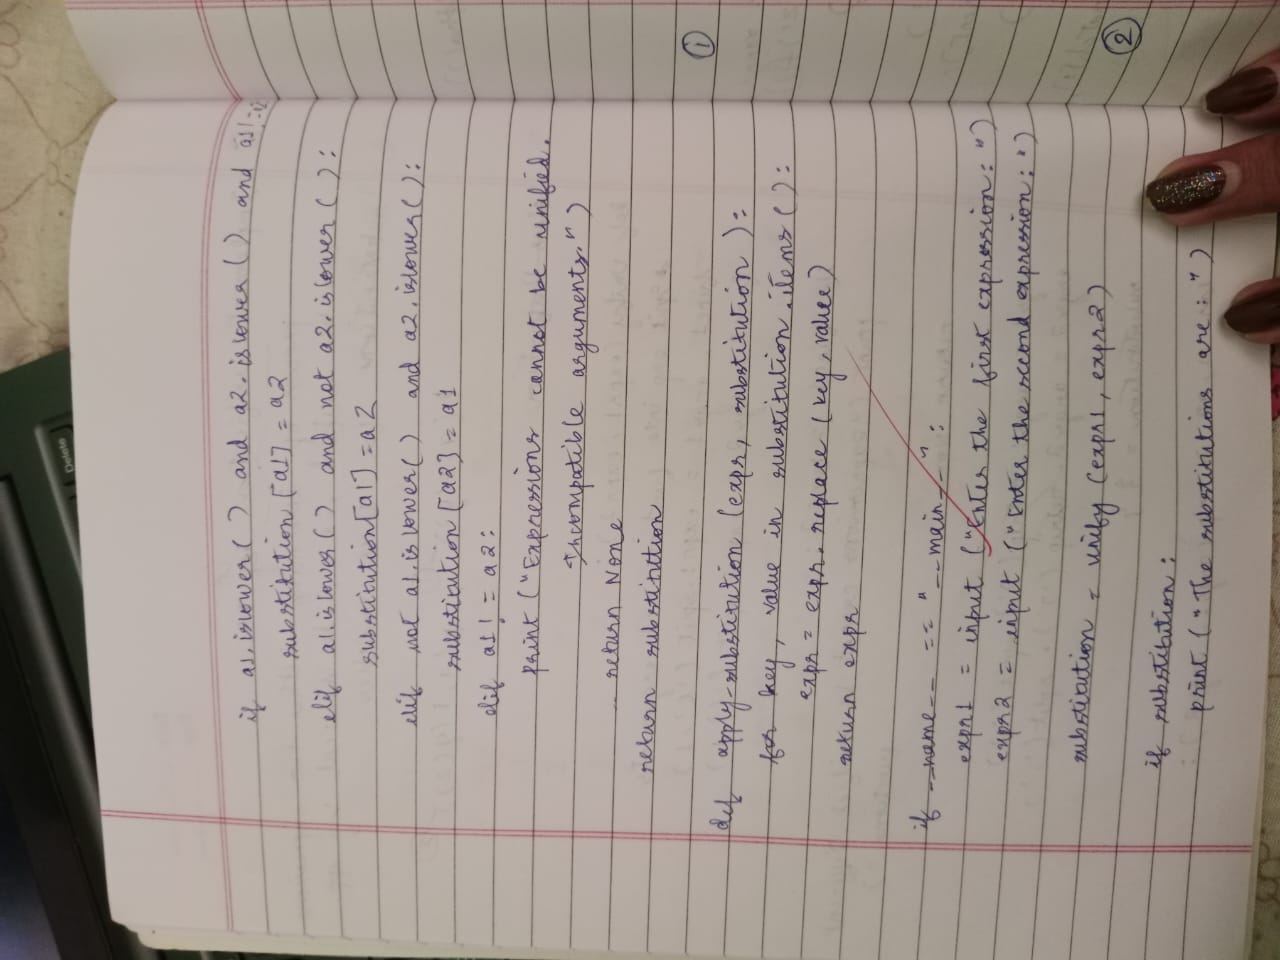 if a1.islower() and a2.islower() and a1!=a2
substitution[a1] = a2
elif a1.islower() and not a2.islower():
substitution[a1] = a2
elif not a1.islower() and a2.islower():
substitution[a2] = a1
elif a1! = a2:
print("Expressions cannot be unified.
Incompatible arguments.")
return None
return substitution
①
def apply-substitution (expr, substitution):
for key, value in substitution.items():
expr = expr.replace(key, value)
return expr
if __name__ == "__main__":
expr1 = input ("Enter the first expression: ")
expr2 = input ("Enter the second expression: ")
②
substitution = unify (expr1, expr2)
if substitution:
print("The substitutions are: ")
Delete